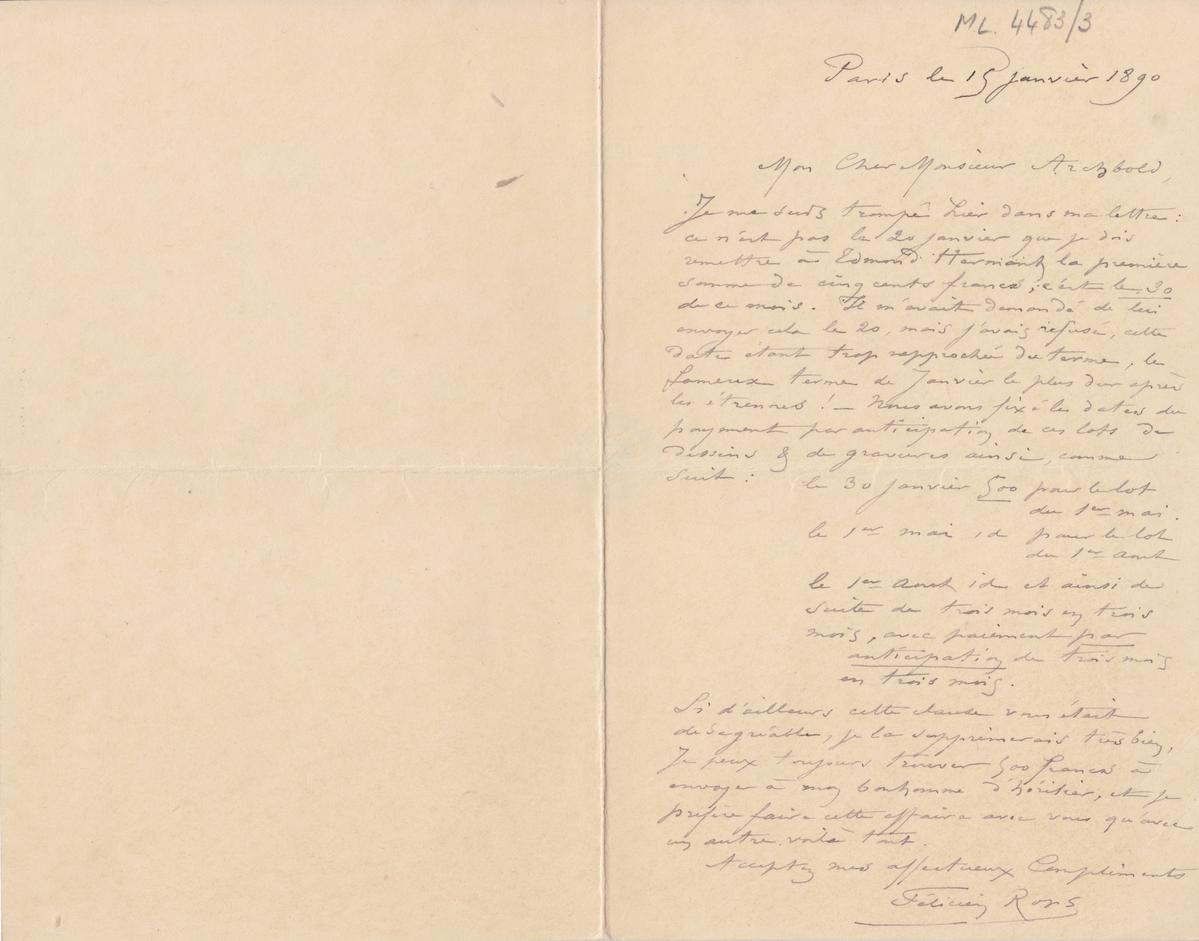 ML. 4483/3
Paris le 15 janvier 1890
Mon Cher Monsieur Archbold,
Je me suis trompé hier dans ma lettre :
ce n'est pas le 20 janvier que je dois
remettre à Edmond la première
somme de cinq cents francs ; c'est le 30
de ce mois. Il m'avait demandé de lui
envoyer cela le 20, mais j'avais refusé, cette
date étant trop rapprochée du terme, le
fameux terme de Janvier le plus dur après
les étrennes ! — Nous avons fixé les dates du
payement par anticipation de ces lots de
dessins & de gravures ainsi, comme
suit :
le 30 janvier 500 pour le lot
du 1er mai.
le 1er mai id pour le lot
du 1er aout
le 1er Aout id et ainsi de
suite de trois mois en trois
mois, avec paiement par
anticipation de trois mois
en trois mois.
Si d'ailleurs cette clause vous était
désagréable, je la supprimerais très bien,
Je peux toujours trouver 500 francs à
envoyer à mon bonhomme d'héritier, et je
préfère faire cette affaire avec vous qu'avec
un autre. voilà tout.
Acceptez mes affectueux Compliments
Félicien Rops